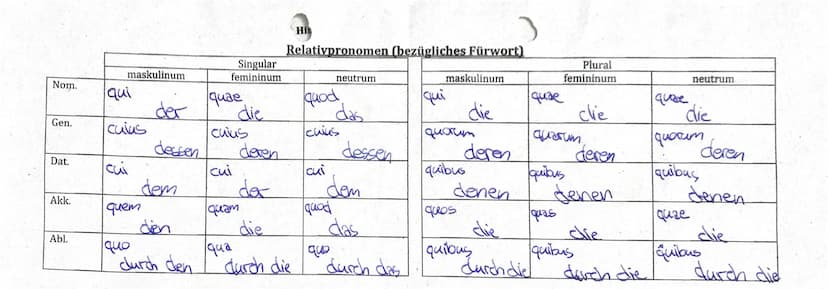 Relativpronomen (bezügliches Fürwort)
Singular Plural
maskulinum femininum neutrum maskulinum femininum neutrum
Nom. qui quae quod qui quae quae
der die das die die die
Gen. cuius cuius cuius quorum quarum quorum
dessen deren dessen deren deren deren
Dat. cui cui cui quibus quibus quibus
dem der dem denen denen denen
Akk. quem quam quod quos quas quae
den die das die die die
Abl. quo qua quo quibus quibus quibus
durch den durch die durch das durch die durch die durch die